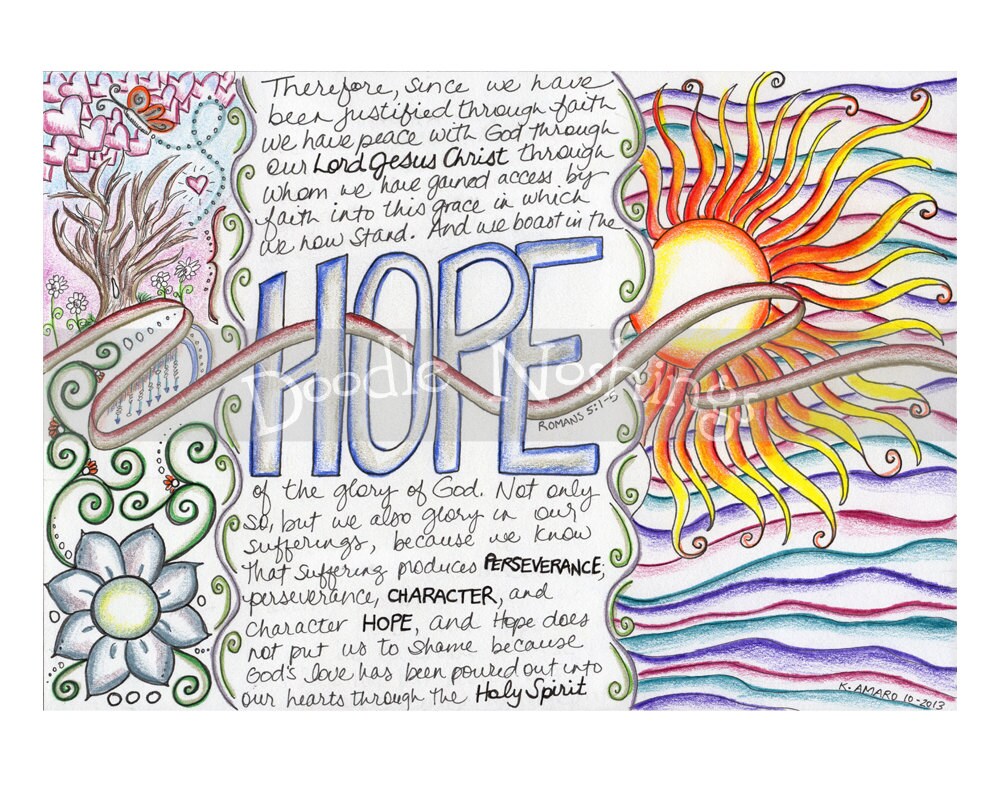 Therefore, since we have
been justified through faith
we have peace with God through
our Lord Jesus Christ through
whom we have gained access by
faith into this grace in which
we now stand. And we boast in the
HOPE
Doodle Noshings
ROMANS 5:1-5
of the glory of God. Not only
so, but we also glory in our
sufferings, because we know
that suffering produces PERSEVERANCE;
perseverance, CHARACTER, and
character HOPE, and Hope does
not put us to shame because
God's love has been poured out into
our hearts through the Holy Spirit
K. AMARO 10-2013